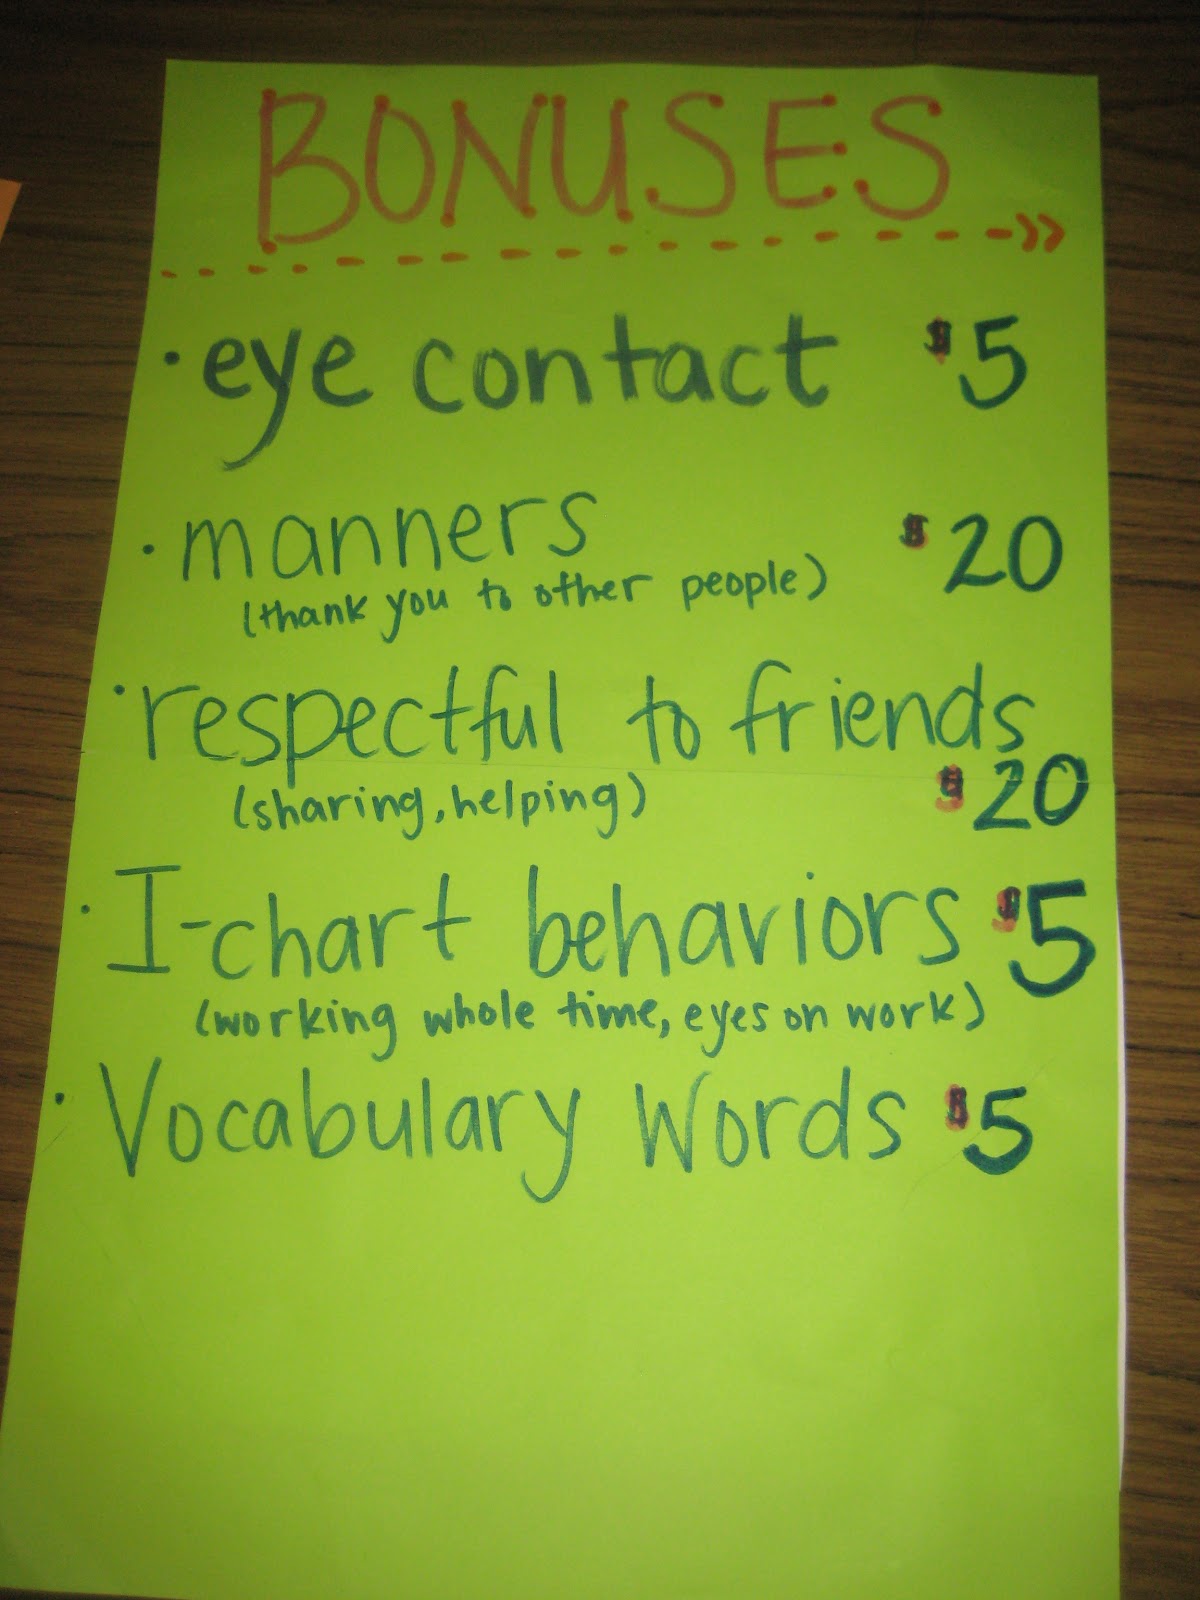 BONUSES
• eye contact $5
• manners $20
(thank you to other people)
• respectful to friends
(sharing, helping) $20
• I-chart behaviors $5
(working whole time, eyes on work)
• Vocabulary Words $5